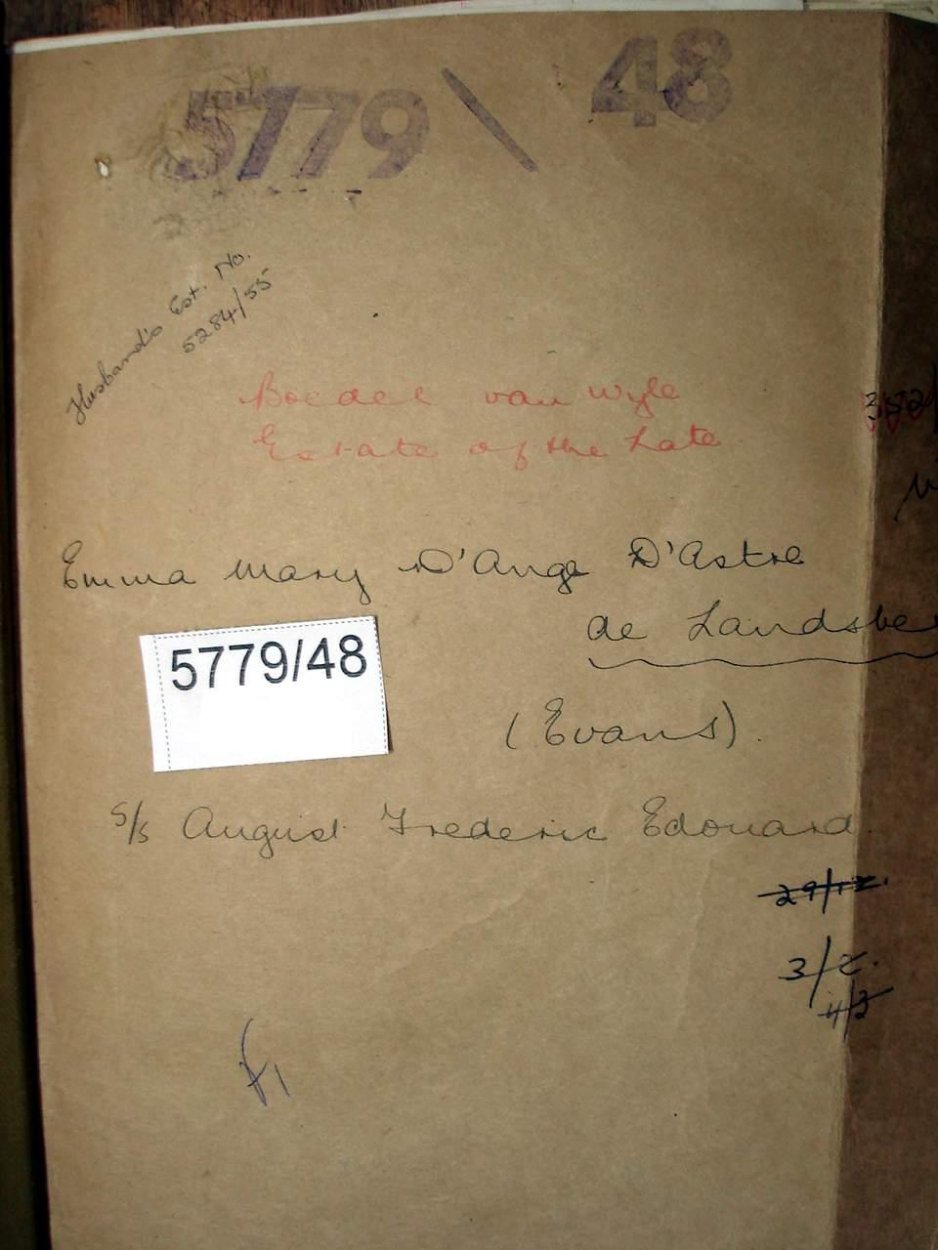 5779 \ 48
Husband's Est. No.
5284/55
Boedel van Wyle
Estate of the Late
Emma Mary D'Ange D'Astre
de Landsbe
(Evans).
5779/48
s/s August Frederic Edouard.
29/12.
3/2.
4/2